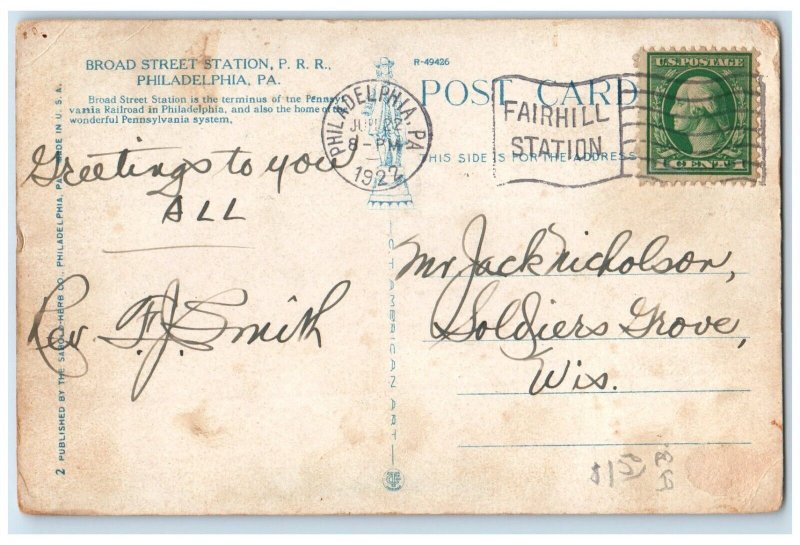 BROAD STREET STATION, P. R. R.,
PHILADELPHIA, PA.
Broad Street Station is the terminus of the Pennsyl-
vania Railroad in Philadelphia, and also the home of the
wonderful Pennsylvania system.
R-49426
POST CARD
THIS SIDE IS FOR THE ADDRESS
PHILADELPHIA, PA.
8-PM
1922
FAIRHILL
STATION
U.S. POSTAGE
1 CENT 1
Greetings to you
ALL
Rev. F. J. Smith
Mr Jack Nicholson,
Soldiers Grove,
Wis.
C. T. AMERICAN ART
2 PUBLISHED BY THE CO., PHILADELPHIA, PA. MADE IN U. S. A.